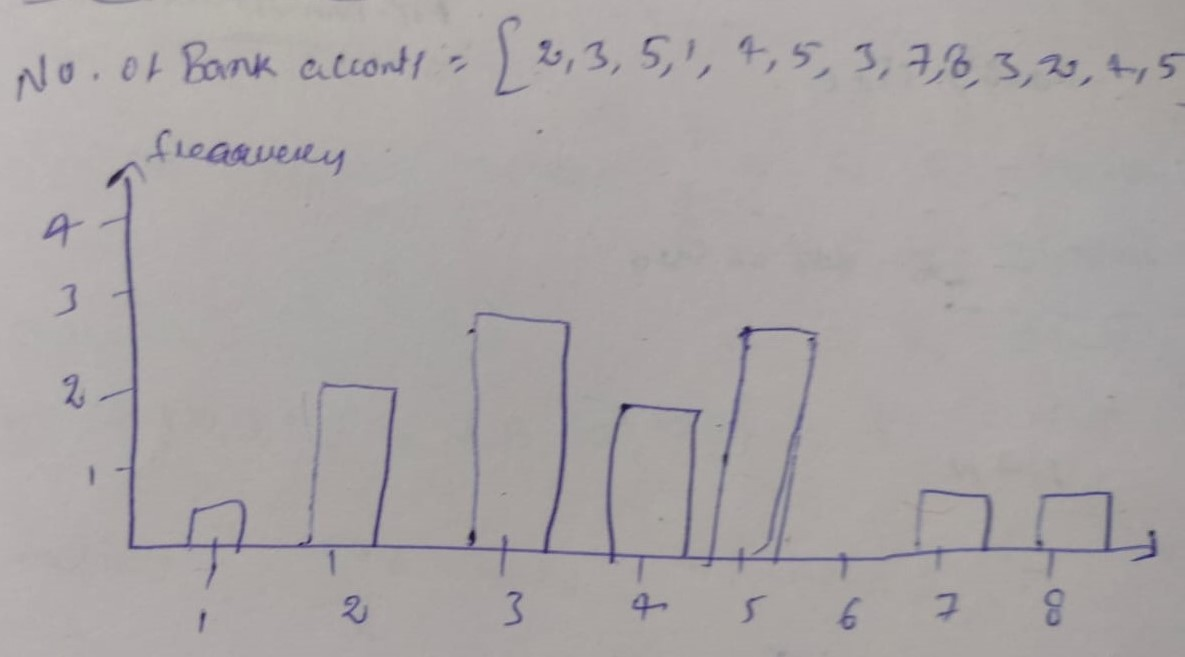 No. of Bank acconts = [2, 3, 5, 1, 4, 5, 3, 7, 8, 3, 2, 4, 5
frequency
4
3
2
1
1 2 3 4 5 6 7 8